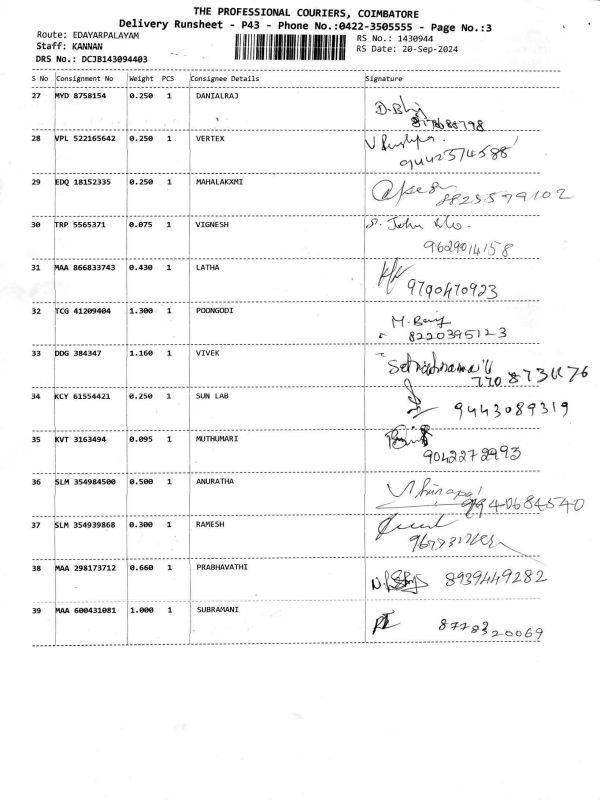 THE PROFESSIONAL COURIERS, COIMBATORE
Delivery Runsheet - P43 - Phone No.:0422-3505555 - Page No.:3
Route: EDAYARPALAYAM
RS No.: 1430944
Staff: KANNAN
RS Date: 20-Sep-2024
DRS No.: DCJB143094403
S No Consignment No Weight PCS Consignee Details Signature
27 MYD 8758154 0.250 1 DANIALRAJ
28 VPL 522165642 0.250 1 VERTEX
9442374588
29 EDQ 18152335 0.250 1 MAHALAKXMI
30 TRP 5565371 0.075 1 VIGNESH
John
9629014158
31 MAA 866833743 0.430 1 LATHA
9790470923
32 TCG 41209404 1.300 1 POONGODI
M.
8220395123
33 DDG 384347 1.160 1 VIVEK
34 KCY 61554421 0.250 1 SUN LAB
9443089319
35 KVT 3163494 0.095 1 MUTHUMARI
9042272993
36 SLM 354984500 0.500 1 ANURATHA
37 SLM 354939868 0.300 1 RAMESH
38 MAA 298173712 0.660 1 PRABHAVATHI
8939449282
39 MAA 600431081 1.000 1 SUBRAMANI
8778320069